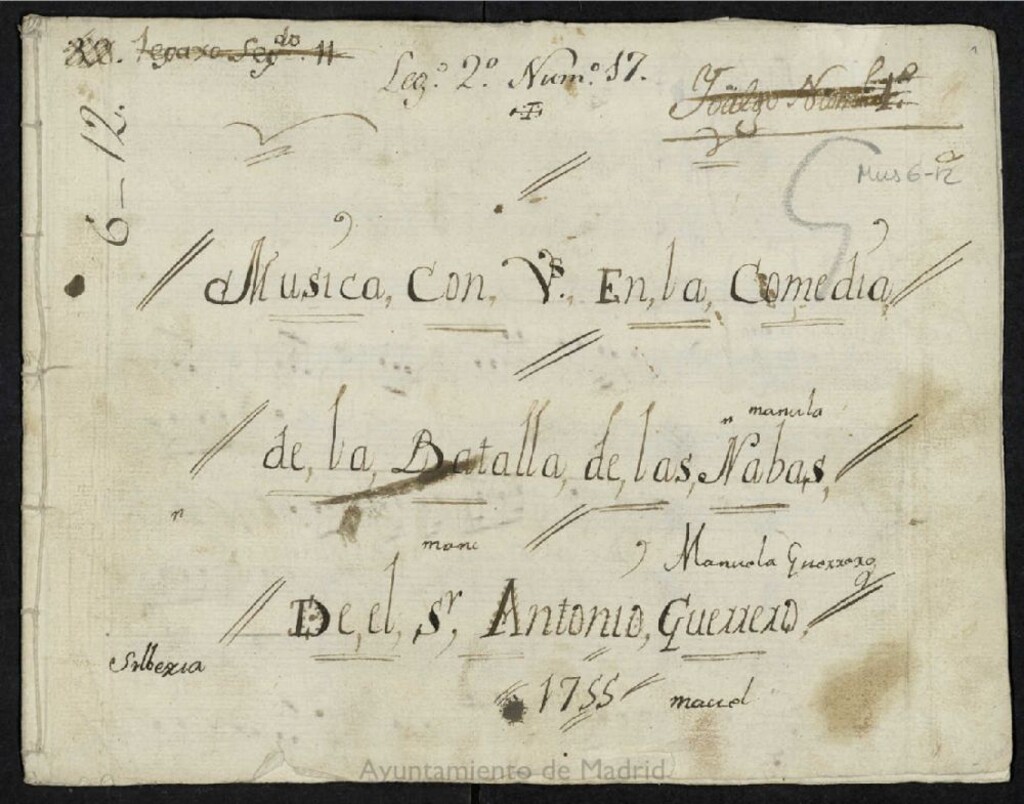 Legaxo Segdo. 11
Leg.º 2.º Num.º 17.
6-12.
Mus 6-12
Musica, Con, Vs. En, la, Comedia,
manula
de, la, Batalla, de, las, Nabas,
n
mane
Manuela Guerrero
De, el, Sr, Antonio, Guerrero,
Silberia
1755
manuel
Ayuntamiento de Madrid